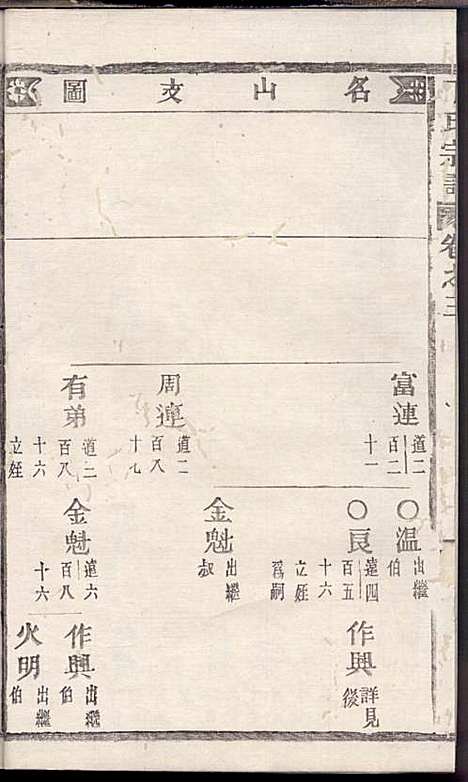 名山支圖
氏宗譜
卷之三
富連
道二
百二
十一
周連
道二
百八
十七
有弟
道二
百八
十六
立姪
○温
出繼
伯
○良
遠四
百五
十六
立姪
爲嗣
金魁
出繼
叔
金魁
遠六
百八
十六
作興
詳見
後
作興
出繼
伯
火明
出繼
伯